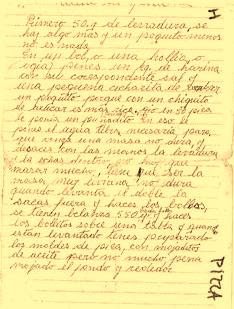 Primero 50 g de levadura, se
hay algo mas y un poquito menos
no es nada
En un bol, o una hollia, o
pones un kg de harina
con su corespondente sal y
una pequeña cucharita de
un poquito porque con un chiquito
de es mas rica, yo lo
le pones un En eso le
pones el agua tibia, nesesaria para
que venga una masa no dura, y
desaces con las manos la levadura
y la echas dentro, no hay que
masar mucho, tiene que ser la
masa, muy tierna, no dura
quando levanta, el doble, la
sacas fuera y haces los bollos,
se tienes belanza 550 g. y haces
los bollitos sobre una tabla y quando
estan levantado tienes preparado
los moldes de pisa, con mojaditos
de aceite pero no mucho, pena
mojado el fondo y rededor
H
PIZZA